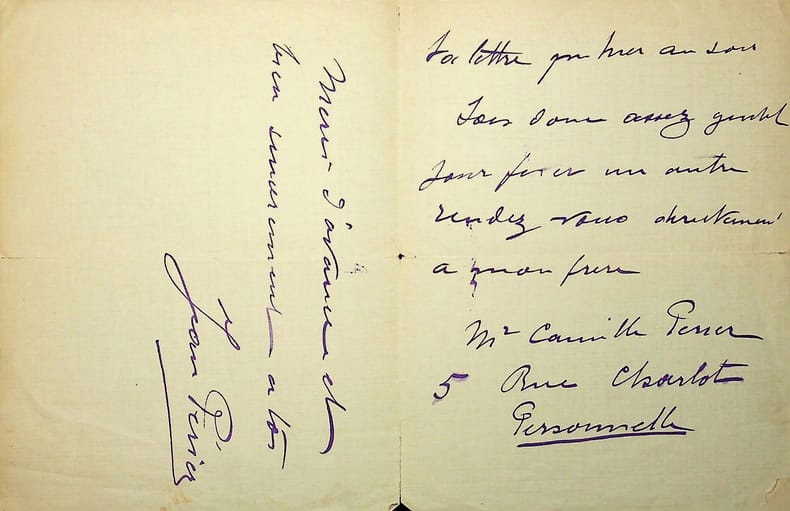 ta lettre qu'hier au soir
Sois donc assez gentil
pour fixer un autre
rendez vous directement
a mon frere
Mr Camille Perier
5 Rue Charlot
Personnelle
Merci d'avance et
bien sincerement a toi
Jean Périer